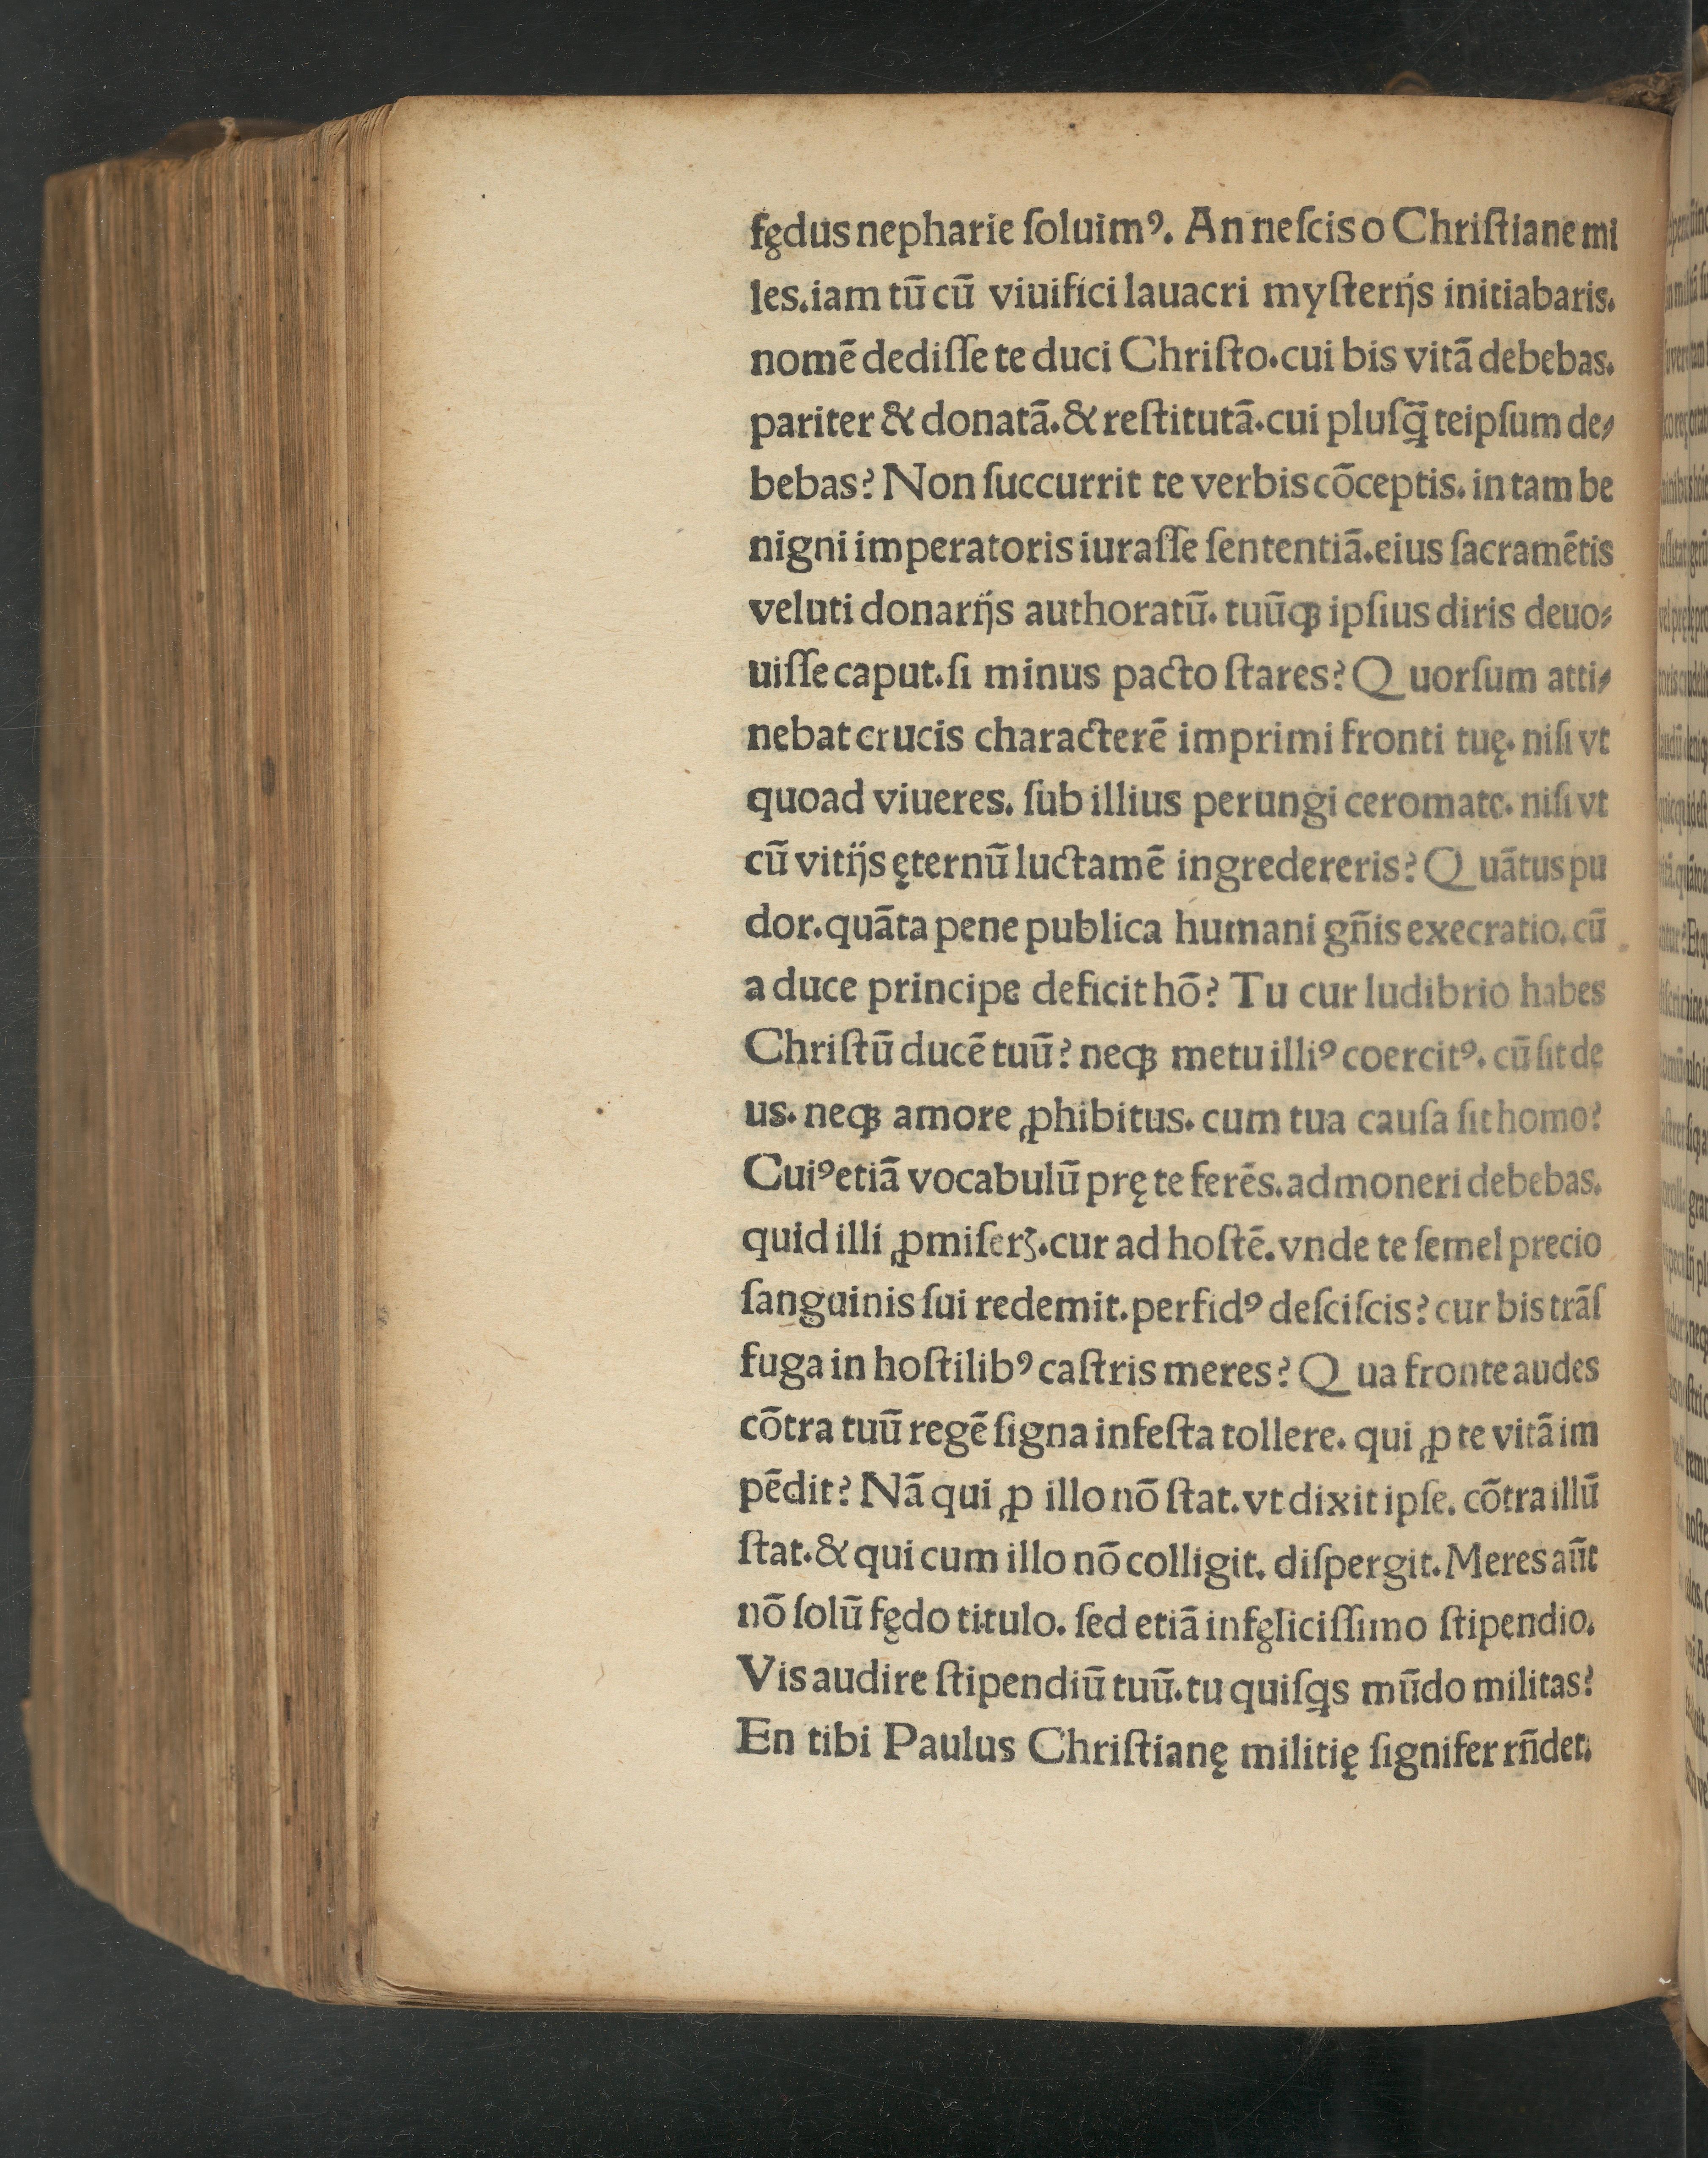 fędus nepharie ſoluimꝰ. An neſcis o Chriſtiane mi
les. iam tū cū viuifici lauacri myſterijs initiabaris.
nomē dediſſe te duci Chriſto. cui bis vitā debebas.
pariter & donatā. & reſtitutā. cui pluſq̄ teipſum de⸗
bebas? Non ſuccurrit te verbis cōceptis. in tam be
nigni imperatoris iuraſſe ſententiā. eius ſacramētis
veluti donarijs authoratū. tuūqꝫ ipſius diris deuo⸗
uiſſe caput. ſi minus pacto ſtares? Quorſum atti⸗
nebat crucis characterē imprimi fronti tuę. niſi vt
quoad viueres. ſub illius perungi ceromate. niſi vt
cū vitijs ęternū luctamē ingredereris? Quātus pu
dor. quāta pene publica humani gn̄is execratio. cū
a duce principe deficit hō? Tu cur ludibrio habes
Chriſtū ducē tuū? neqꝫ metu illiꝰ coercitꝰ. cū ſit de
us. neqꝫ amore ꝓhibitus. cum tua cauſa ſit homo?
Cuiꝰ etiā vocabulū prę te ferēs. admoneri debebas.
quid illi ꝓmiſerꝭ. cur ad hoſtē. vnde te ſemel precio
ſanguinis ſui redemit. perfidꝰ deſciſcis? cur bis trāſ
fuga in hoſtilibꝰ caſtris meres? Qua fronte audes
cōtra tuū regē ſigna infeſta tollere. qui ꝓ te vitā im
pēdit? Nā qui ꝓ illo nō ſtat. vt dixit ipſe. cōtra illū
ſtat. & qui cum illo nō colligit. diſpergit. Meres aūt
nō ſolū fędo titulo. ſed etiā infęliciſſimo ſtipendio.
Vis audire ſtipendiū tuū. tu quiſqs mūdo militas?
En tibi Paulus Chriſtianę militię ſignifer rn̄det.